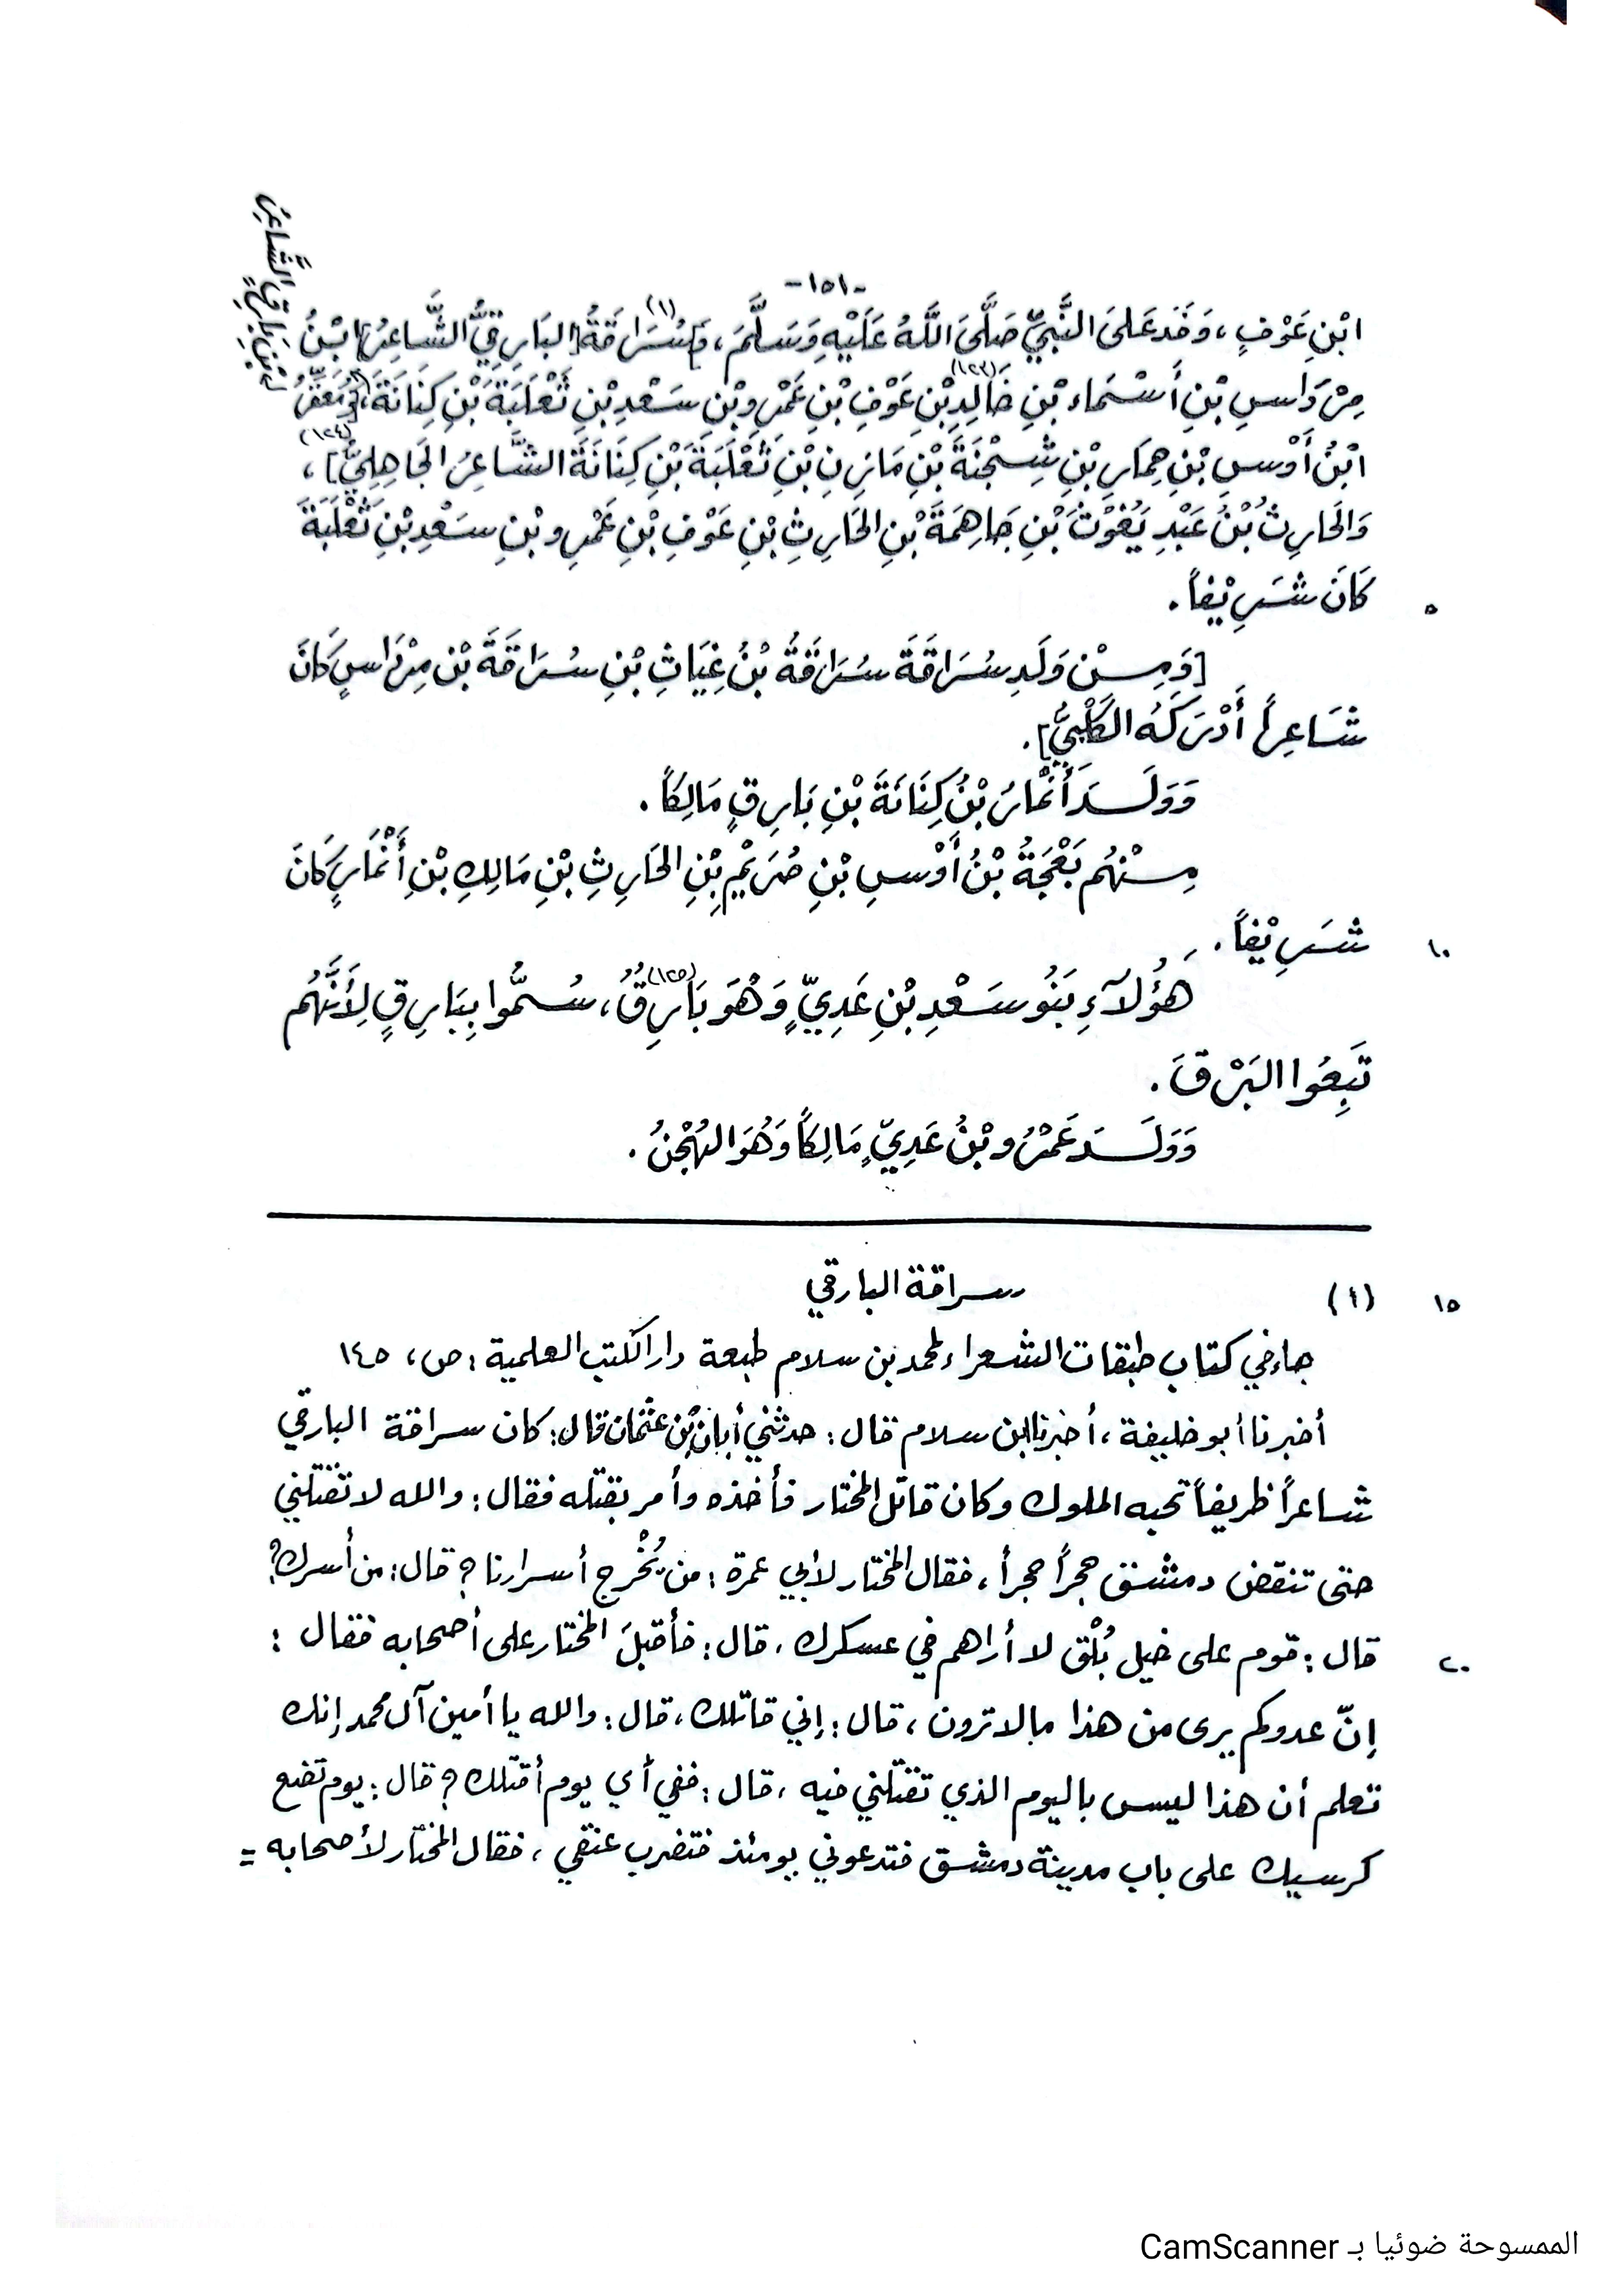 -١٥١-
ابْنِ عَوْفٍ، وَفَدَ عَلىَ النَّبِيِّ صَلَّىَ اللَّهُ عَلَيْهِ وَسَلَّمَ، [وَ]سُرَاقَةُ(١) [البَارِقِيُّ الشَّاعِرُ] ابْنُ
مِرْدَاسِ بْنِ أَسْمَاء بْنِ خَالِدِ(١٢٣) بْنِ عَوْفِ بْنِ عَمْرِو بْنِ سَعْدِ بْنِ ثَعْلَبَةَ بْنِ كِنَانَةَ، [وَمُعَقِّرُ
ابْنُ أَوْسِ بْنِ حِمَارِ بْنِ شِجْنَةَ بْنِ مَازِنِ بْنِ ثَعْلَبَةَ بْنِ كِنَانَةَ الشَّاعِرُ الجَاهِلِيُّ](١٢٤)،
بْنِ بَارِقٍ الشَّاعِرُ
وَالحَارِثُ بْنُ عَبْدِ يَغُوْثَ بْنِ جَاهِمَةَ بْنِ الحَارِثِ بْنِ عَوْفِ بْنِ عَمْرِو بْنِ سَعْدِ بْنِ ثَعْلَبَةَ
٥ كَانَ شَرِيْفاً.
[وَمِنْ وَلَدِ سُرَاقَةَ سُرَاقَةُ بْنُ غِيَاثِ بْنِ سُرَاقَةَ بْنِ مِرْدَاسٍ كَانَ
شَاعِراً أَدْرَكَهُ الكَلْبِيُّ].
وَوَلَدَ أَنْمَارُ بْنُ كِنَانَةَ بْنِ بَارِقٍ مَالِكاً.
مِنْهُم بَعْجَةُ بْنُ أَوْسِ بْنِ صُرَيْمِ بْنِ الحَارِثِ بْنِ مَالِكِ بْنِ أَنْمَارٍ كَانَ
١٠ شَرِيْفاً.
هَؤُلَآءِ بَنُو سَعْدِ بْنِ عَدِيٍّ وَهُوَ بَارِقُ(١٢٥)، سُمُّوا بِبَارِقٍ لِأَنَّهُم
تَبِعُوا البَرْقَ.
وَوَلَدَ عَمْرُو بْنُ عَدِيٍّ مَالِكاً وَهُوَ الهُجْنُ.
١٥ (١) سراقة البارقي
جاء في كتاب طبقات الشعراء لمحمد بن سلام طبعة دار الكتب العلمية: ص، ١٤٥
أخبرنا أبو خليفة، أخبرنا ابن سلام قال: حدثني أبان بن عثمان قال: كان سراقة البارقي
شاعراً ظريفاً تحبه الملوك وكان قاتل المختار فأخذه وأمر بقتله فقال: والله لا تقتلني
حتى تنقض دمشق حجراً حجراً، فقال المختار لأبي عمرة: من يُخْرج أسرارنا؟ قال: من أسرك؟
٢٠ قال: قوم على خيل بُلْق لا أراهم في عسكرك، قال: فأقبلَ المختار على أصحابه فقال:
إنّ عدوكم يرى من هذا مالا ترون، قال: إني قاتلك، قال: والله يا أمين آل محمد إنك
تعلم أن هذا ليس باليوم الذي تقتلني فيه، قال: ففي أي يوم أقتلك؟ قال: يوم تضع
كرسيك على باب مدينة دمشق فتدعوني يومئذ فتضرب عنقي، فقال المختار لأصحابه =
الممسوحة ضوئيا بـ CamScanner